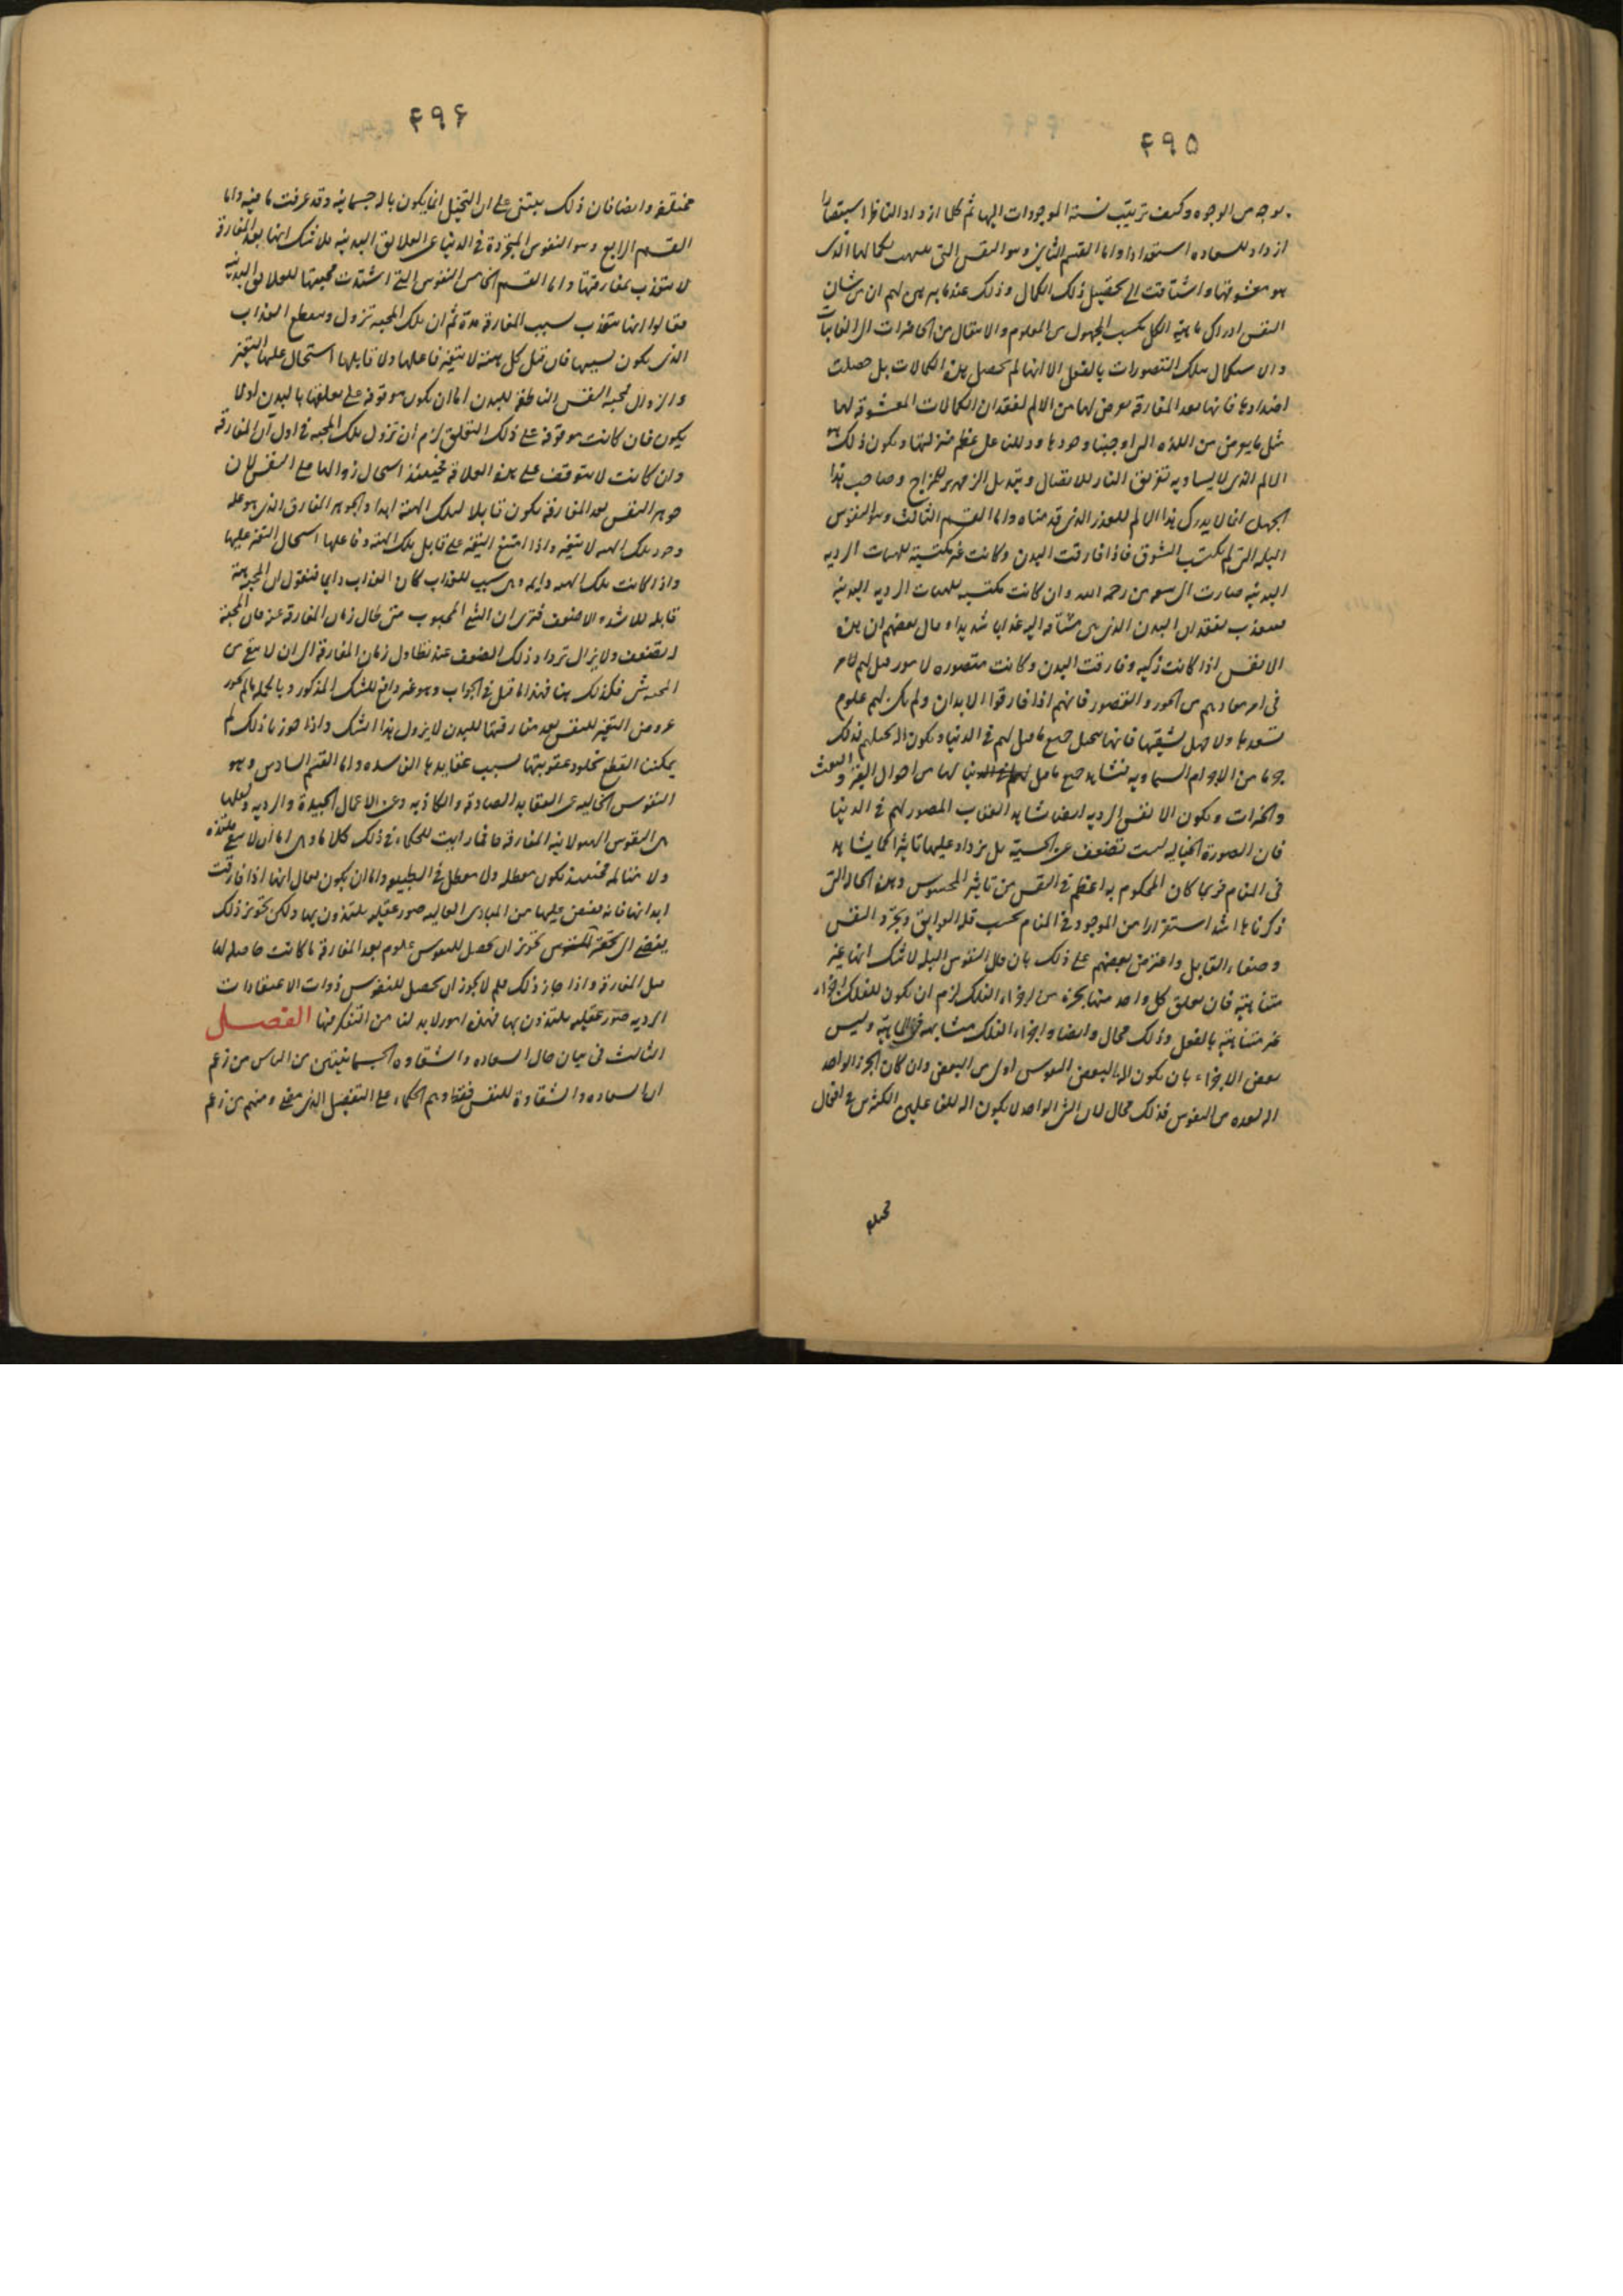 ۴۹۵
بوجه من الوجوه وكيف ترتيب نسبة الموجودات اليها ثم كلما ازداد الناظر استبصارا
ازداد للسعاده استعدادا واما القسم الثانى وهو النفس التى تنبهت لكمالها الذى
هو معشوقها واشتاقت الى تحصيل ذلك الكمال وذلك عندما يبرهن لهم ان من شان
النفس ادراك ماهية الكل بكسب المجهول من المعلوم والانتقال من الحاضرات الى الغايبات
والاستكمال بتلك التصورات بالفعل الا انها لم تحصل هذه الكمالات بل حصلت
اضدادها فانها بعد المفارقه يعرض لها من الالم لفقدان الكمالات المعشوقه لها
مثل ما يعرض من اللذه التى اوجبنا وجودها ودللنا على عظم منزلتها ويكون ذلك هو
الالم الذى لا يساويه تفريق النار للاتصال وتبديل الزمهرير للمزاج وصاحب هذا
الجهل انما لا يدرك هذا الالم للعذر الذى قدمناه واما القسم الثالث وهو النفوس
البله التى لم تكتسب الشوق فاذا فارقت البدن وكانت غير مكتسبة للهيات الرديه
البدنيه صارت الى سعه من رحمه الله وان كانت مكتسبه للهيات الرديه البدنيه
فتعذب بفقدان البدن الذى هى مشتاقه اليه عذابا شديدا وقال بعضهم ان هذه
الانفس اذا كانت زكيه وفارقت البدن وكانت متصوره لامور قيل لهم
فى امر معادهم من الحور والقصور فانهم اذا فارقوا الابدان ولم يكن لهم علوم
تسعدها ولا جهل يشقيها فانها تتخيل جميع ما قيل لهم فى الدنيا ويكون اله تخيلهم لذلك
جرما من الاجرام السماويه فتشاهد جميع ما قيل لها فى الدنيا من احوال القبر والبعث
والخيرات ويكون الانفس الرديه ايضا تشاهد العقاب المصور لهم فى الدنيا
فان الصورة الخياليه ليست تضعف عن الحسية بل تزداد عليها تاثيرا كما يشاهد
فى المنام فربما كان المحكوم به اعظم فى النفس من تاثير المحسوس وهذه الحاله التى
ذكرناها اشد استقرارا من الموجود فى المنام بحسب قله العوايق وتجرد النفس
وصفاء القابل واعترض بعضهم على ذلك بان قال النفوس البله لا شك انها غير
متناهية فان تعلق كل واحد منها بجزء من اجزاء الفلك لزم ان يكون للفلك اجزاء
غير متناهية بالفعل وذلك محال وايضا واجزاء الفلك متشابهه فى الماهية وليس
بعض الاجزاء بان يكون اله لبعض النفوس اولى من البعض وان كان الجزء الواحد
اله لعده من النفوس فذلك محال لان الشى الواحد لا يكون اله للفاعلين الكثيرين فى افعال
مختلفه
۴۹۶
مختلفه وايضا فان ذلك يبتنى على ان التخيل انما يكون باله جسمانيه وقد عرفت ما فيه واما
القسم الرابع وهو النفوس المجردة فى الدنيا عن العلايق البدنيه فلا شك انها بعد المفارقة
لا تتعذب بمفارقتها واما القسم الخامس النفوس التى اشتدت محبتها للعلايق البدنية
فقالوا انها تتعذب بسبب المفارقة مدة ثم ان تلك المحبه تزول وينقطع العذاب
الذى يكون بسببها فان قيل كل هيئة لا يتغير فاعلها ولا قابلها استحال عليها التغير
والزوال فمحبه النفس الناطقه للبدن اما ان يكون موقوفة على تعلقها بالبدن او لا
يكون فان كانت موقوفة على ذلك التعلق لزم ان تزول تلك المحبه فى اول آن المفارقه
وان كانت لا تتوقف على هذه العلاقه فحينئذ استحال زوالها عن النفس لان
جوهر النفس بعد المفارقه يكون قابلا لتلك الهيئة ابدا والجوهر المفارق الذى هو عله
وجود تلك الهيئه لا يتغير واذا امتنع التغير على قابل تلك الهيئه وفاعلها استحال التغير عليها
واذا كانت تلك الهيئه دايمه وهى سبب للعذاب كان العذاب دايما فنقول ان المحبه هيئة
قابله للاشد والاضعف فترى ان الشى المحبوب متى طال زمان المفارقه عنه فان المحبة
له تضعف ولا يزال ترداد ذلك الضعف عند تطاول زمان المفارقه الى ان لا يبقى من
المحبه شى فكذلك هنا فهذا ما قيل فى الجواب وهو غير دافع للشك المذكور وبالجمله ما لم نجوز
عروض التغير للنفس بعد مفارقتها للبدن لا يزول هذا الشك واذا جوزنا ذلك لم
يمكننا القطع بخلود عقوبتها بسبب عقايدها الفاسده واما القسم السادس وهو
النفوس الخاليه عن العقايد الصادقه والكاذبه وعن الاعمال الجيدة والرديه ولعلها
هى النفوس الهيولانيه المفارقه فما رايت للحكماء فى ذلك كلاما وهى اما ان لا تبقى ملتذه
ولا متالمه فحينئذ تكون معطله ولا معطل فى الطبيعه واما ان يكون يقال انها اذا فارقت
ابدانها فانه يفيض عليها من المبادى العاليه صور عقليه يلتذون بها ولكن تجويز ذلك
يفضى الى تجويز ان يحصل للنفوس علوم بعد المفارقه ما كانت حاصله لها
قبل المفارقه واذا جاز ذلك فلم لا يجوز ان يحصل للنفوس ذوات الاعتقادات
الرديه صور عقليه يلتذون بها فهذه امور لا بد لنا من التفكر فيها الفصل
الثالث فى بيان حال السعاده والشقاوه الجسمانيتين من الناس من زعم
ان السعاده والشقاوة للنفس فقط وهم الحكماء على التفصيل الذى مضى ومنهم من زعم